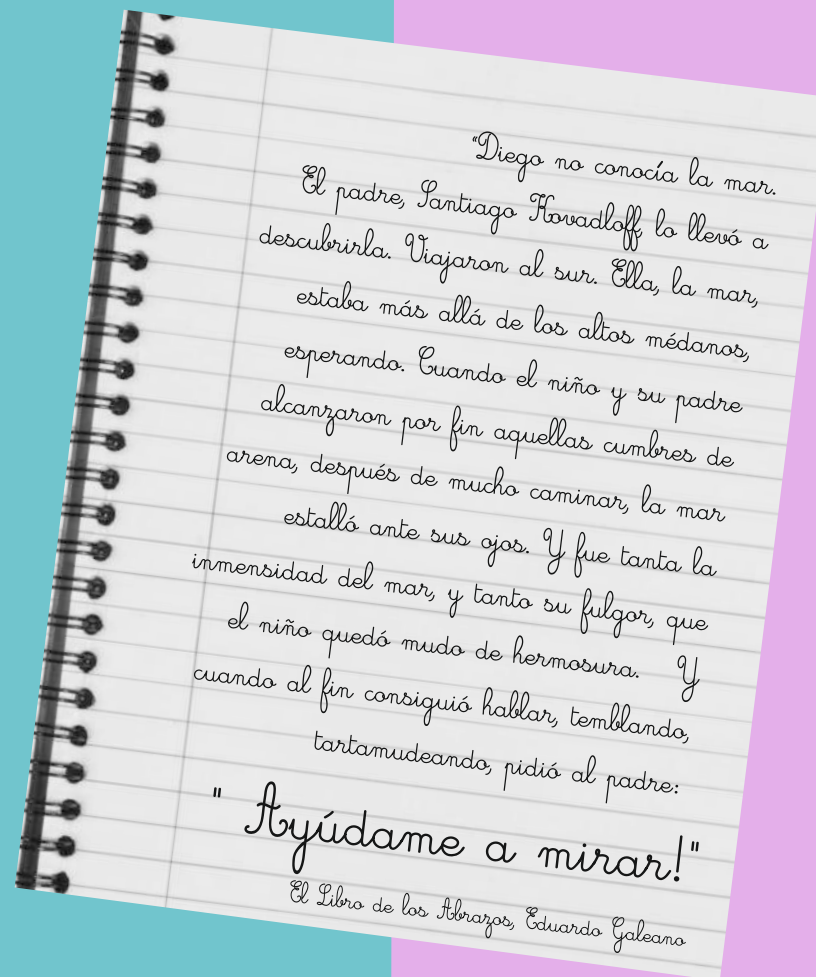 "Diego no conocía la mar.
El padre, Santiago Kovadloff, lo llevó a
descubrirla. Viajaron al sur. Ella, la mar,
estaba más allá de los altos médanos,
esperando. Cuando el niño y su padre
alcanzaron por fin aquellas cumbres de
arena, después de mucho caminar, la mar
estalló ante sus ojos. Y fue tanta la
inmensidad del mar, y tanto su fulgor, que
el niño quedó mudo de hermosura. Y
cuando al fin consiguió hablar, temblando,
tartamudeando, pidió al padre:
" Ayúdame a mirar!"
El Libro de los Abrazos, Eduardo Galeano